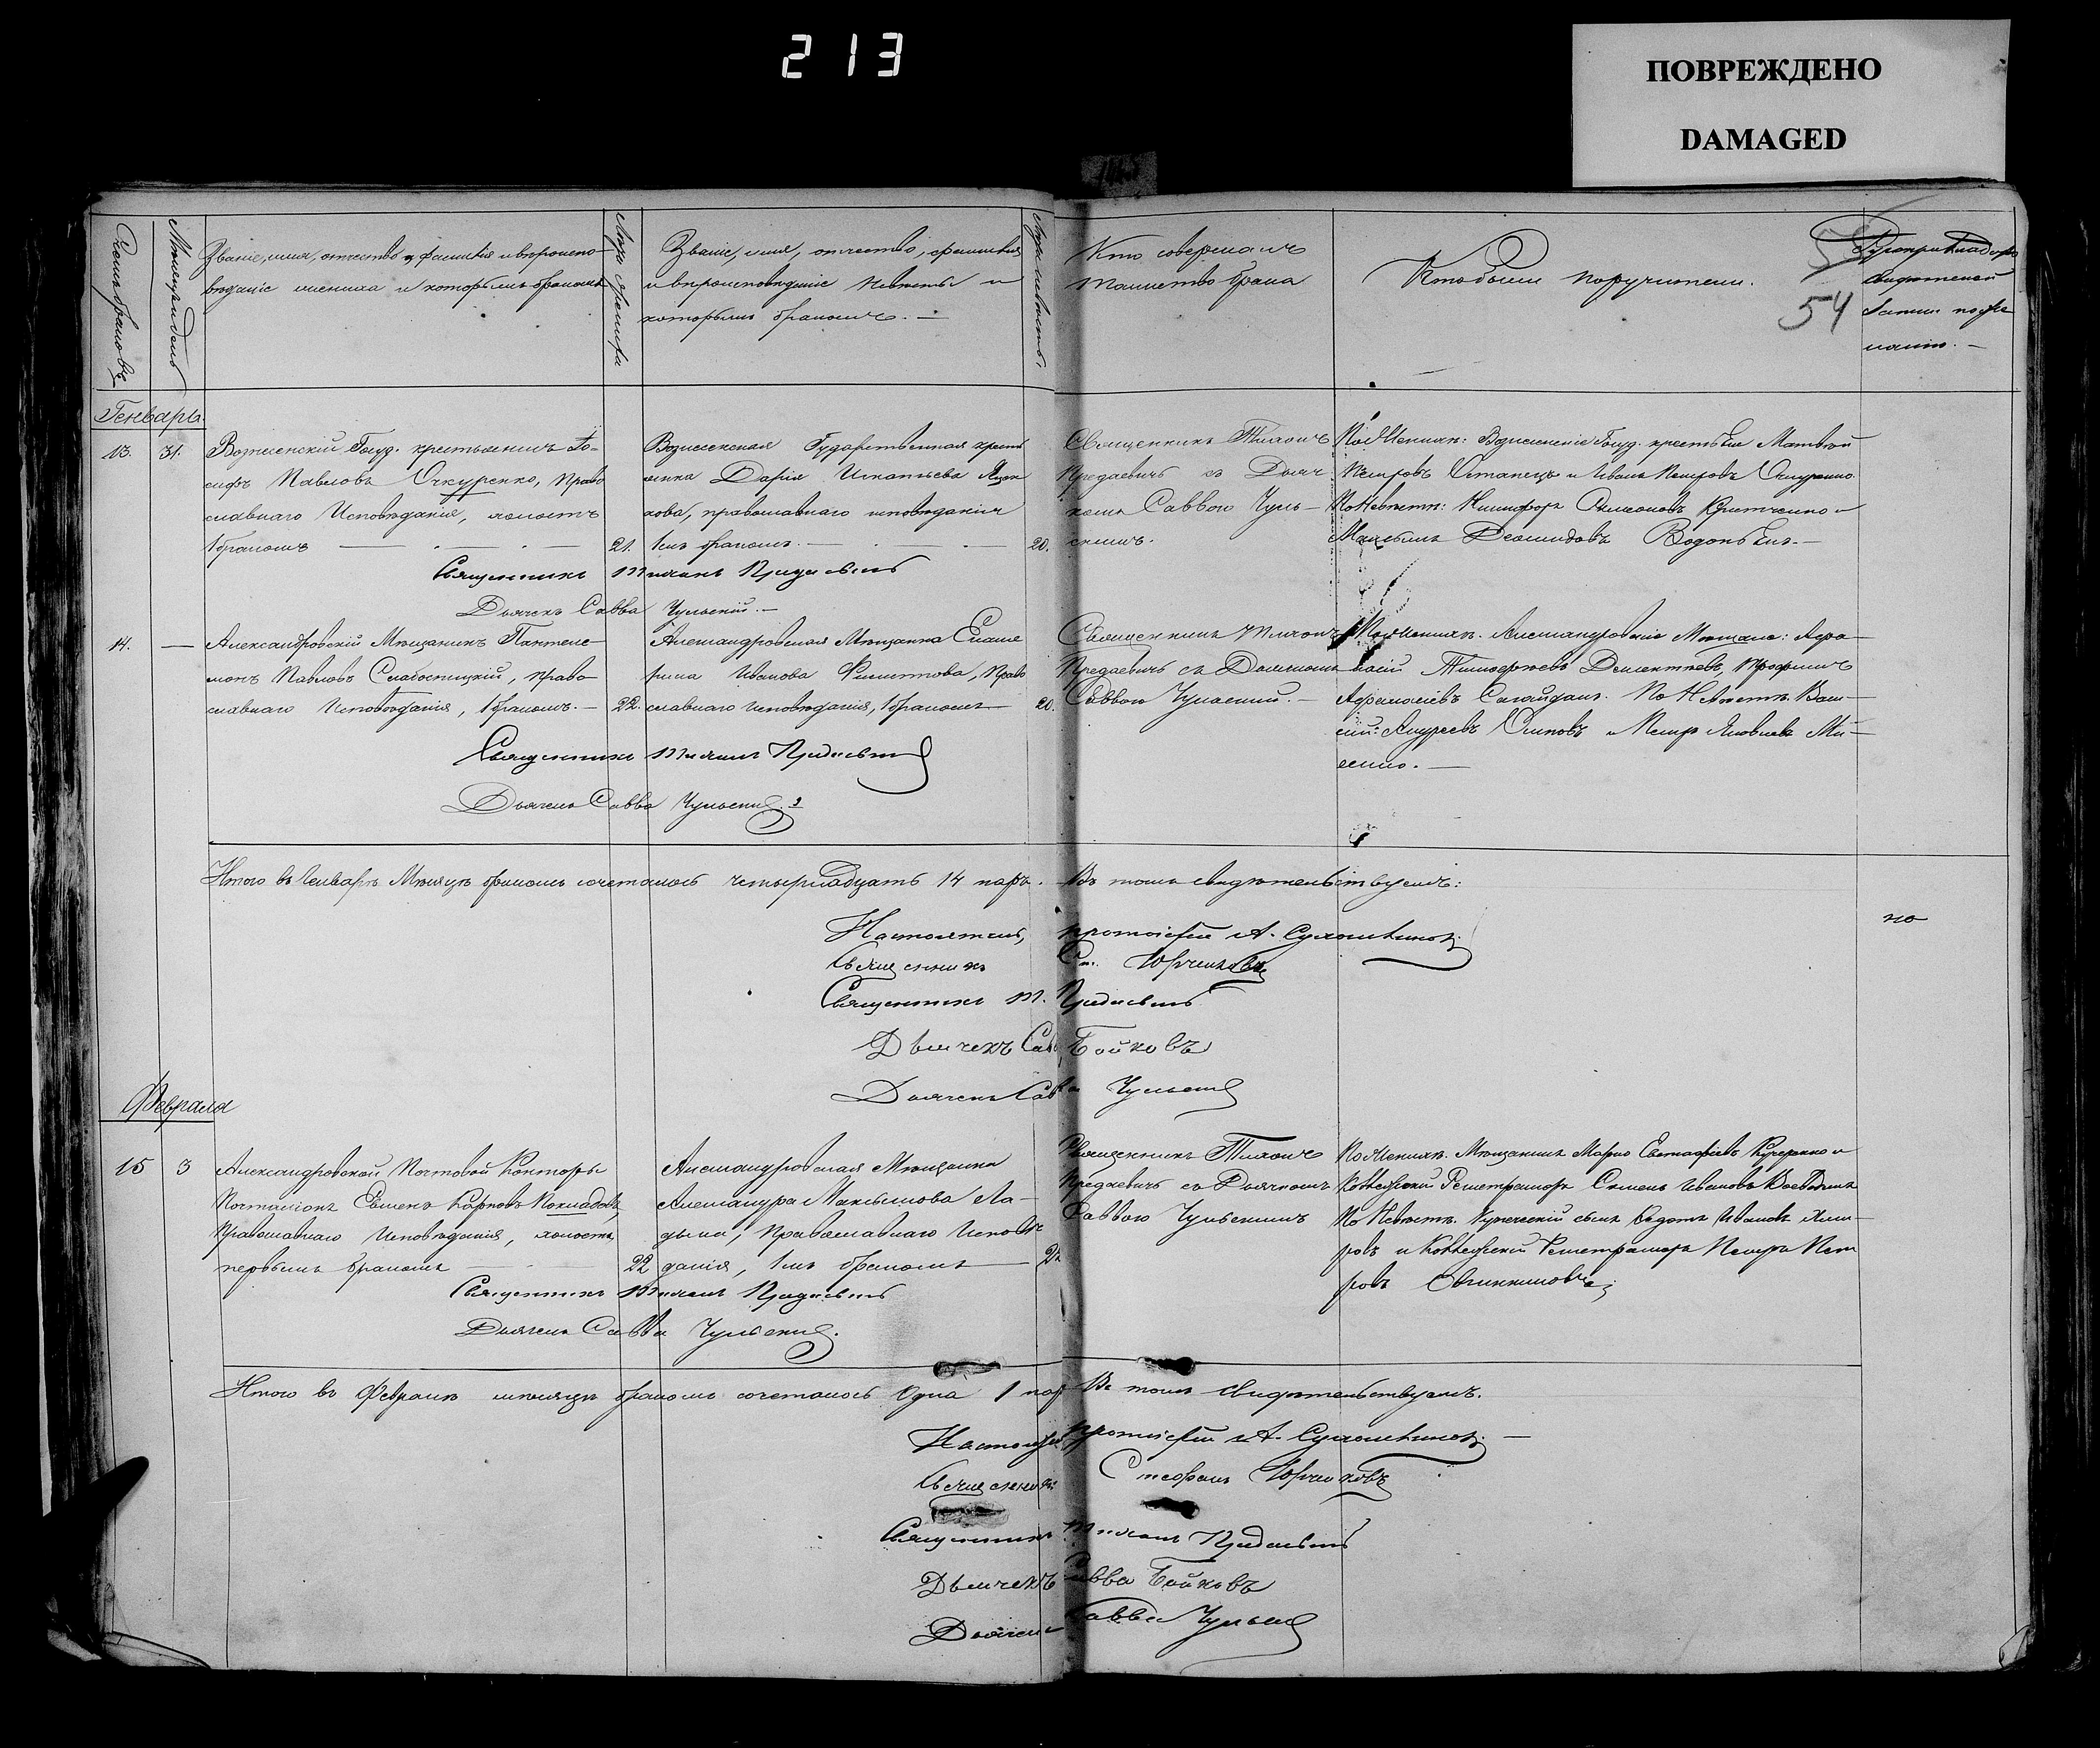 213
ПОВРЕЖДЕНО
DAMAGED
Счетъ браковъ
Мѣсяцъ и день
Званіе, имя, отчество, фамилія и вѣроиспо-
вѣданіе жениха и которымъ бракомъ
Лѣта жениха
Званіе, имя, отчество, фамилія
и вѣроисповѣданіе невѣсты и
которымъ бракомъ. —
Лѣта невѣсты
Кто совершалъ
таинство брака
Кто были поручители.
54
свидѣтелей
записи по
Генварь.
13.
31.
Вознесенскій Госуд. крестьянинъ Іо-
сифъ Павловъ Очкуренко, право
славнаго Исповѣданія, холостъ
1 бракомъ
21.
Вознесенская Государственная крест
янка Дарія Игнатьева
кова, православнаго исповѣданія
1мъ бракомъ. —
20.
Священникъ Тихонъ
Предаевичъ съ Дьяч
комъ Саввою Чуль-
скимъ.
По Женихѣ: Вознесенскіе Госуд. крестьяне Матвѣй
Петровъ Остапецъ и Иванъ Петровъ Очкуренко
По Невѣстѣ: Никифоръ Симоновъ Критченко и
Максимъ Деомидовъ
Священникъ Тихонъ Предаевичъ
Дьячекъ Савва Чульскій. —
14.
—
Александровскій Мѣщанинъ Пантеле-
монъ Павловъ Слабоспицкій, право
славнаго Исповѣданія, 1 бракомъ. —
22.
Александровская Мѣщанка Екате
рина Иванова Филиппова, Право
славнаго исповѣданія, 1 бракомъ —
20.
Священникъ Тихонъ
Предаевичъ съ Дьячкомъ
Саввою Чульскимъ. —
По Женихѣ. Александровскіе Мѣщане: Афа-
насій Тимофѣевъ Дементьевъ, Трофимъ
Афанасіевъ Сагайданъ. По Невѣстѣ. Васи-
лій Андреевъ Осиповъ и Петръ Яковлевъ Ми-
Священникъ Тихонъ Предаевичъ
Дьячекъ Савва Чульскій.
Итого въ Генварѣ Мѣсяцѣ бракомъ сочеталось четырнадцать 14 паръ. — Въ томъ свидѣтельствуемъ:
Настоятель, протоіерей А.
Священникъ Ст. Юрченковъ
Священникъ Т. Предаевичъ
Дьячекъ Савва Бойковъ
Дьячекъ Савва Чульскій
но
Февраля
15
3
Александровской Почтовой Конторы
Почталіонъ Семенъ Карповъ Покладовъ,
Православнаго Исповѣданія, холостъ,
первымъ бракомъ
22
Александровская Мѣщанка
Александра Максимова Ла-
дыка, Православнаго Исповѣ
данія, 1мъ бракомъ —
Священникъ Тихонъ
Предаевичъ съ Дьячкомъ
Саввою Чульскимъ
По Женихѣ. Мѣщанинъ Марко Евстафіевъ Кучеренко и
Коллежскій Регистраторъ Семенъ Ивановъ
По Невѣстѣ. Купеческій сынъ Федотъ Ивановъ
ровъ и Коллежскій Регистраторъ Петръ Пет
ровъ Овчинниковъ.
Священникъ Тихонъ Предаевичъ
Дьячекъ Савва Чульскій.
Итого въ Февралѣ мѣсяцѣ бракомъ сочеталось одна 1 пара Въ томъ свидѣтельствуемъ.
Настоятель протоіерей А.
Священникъ Стефанъ Юрченковъ
Священникъ Тихонъ Предаевичъ
Дьячекъ Савва Бойковъ
Дьячекъ Савва Чульскій